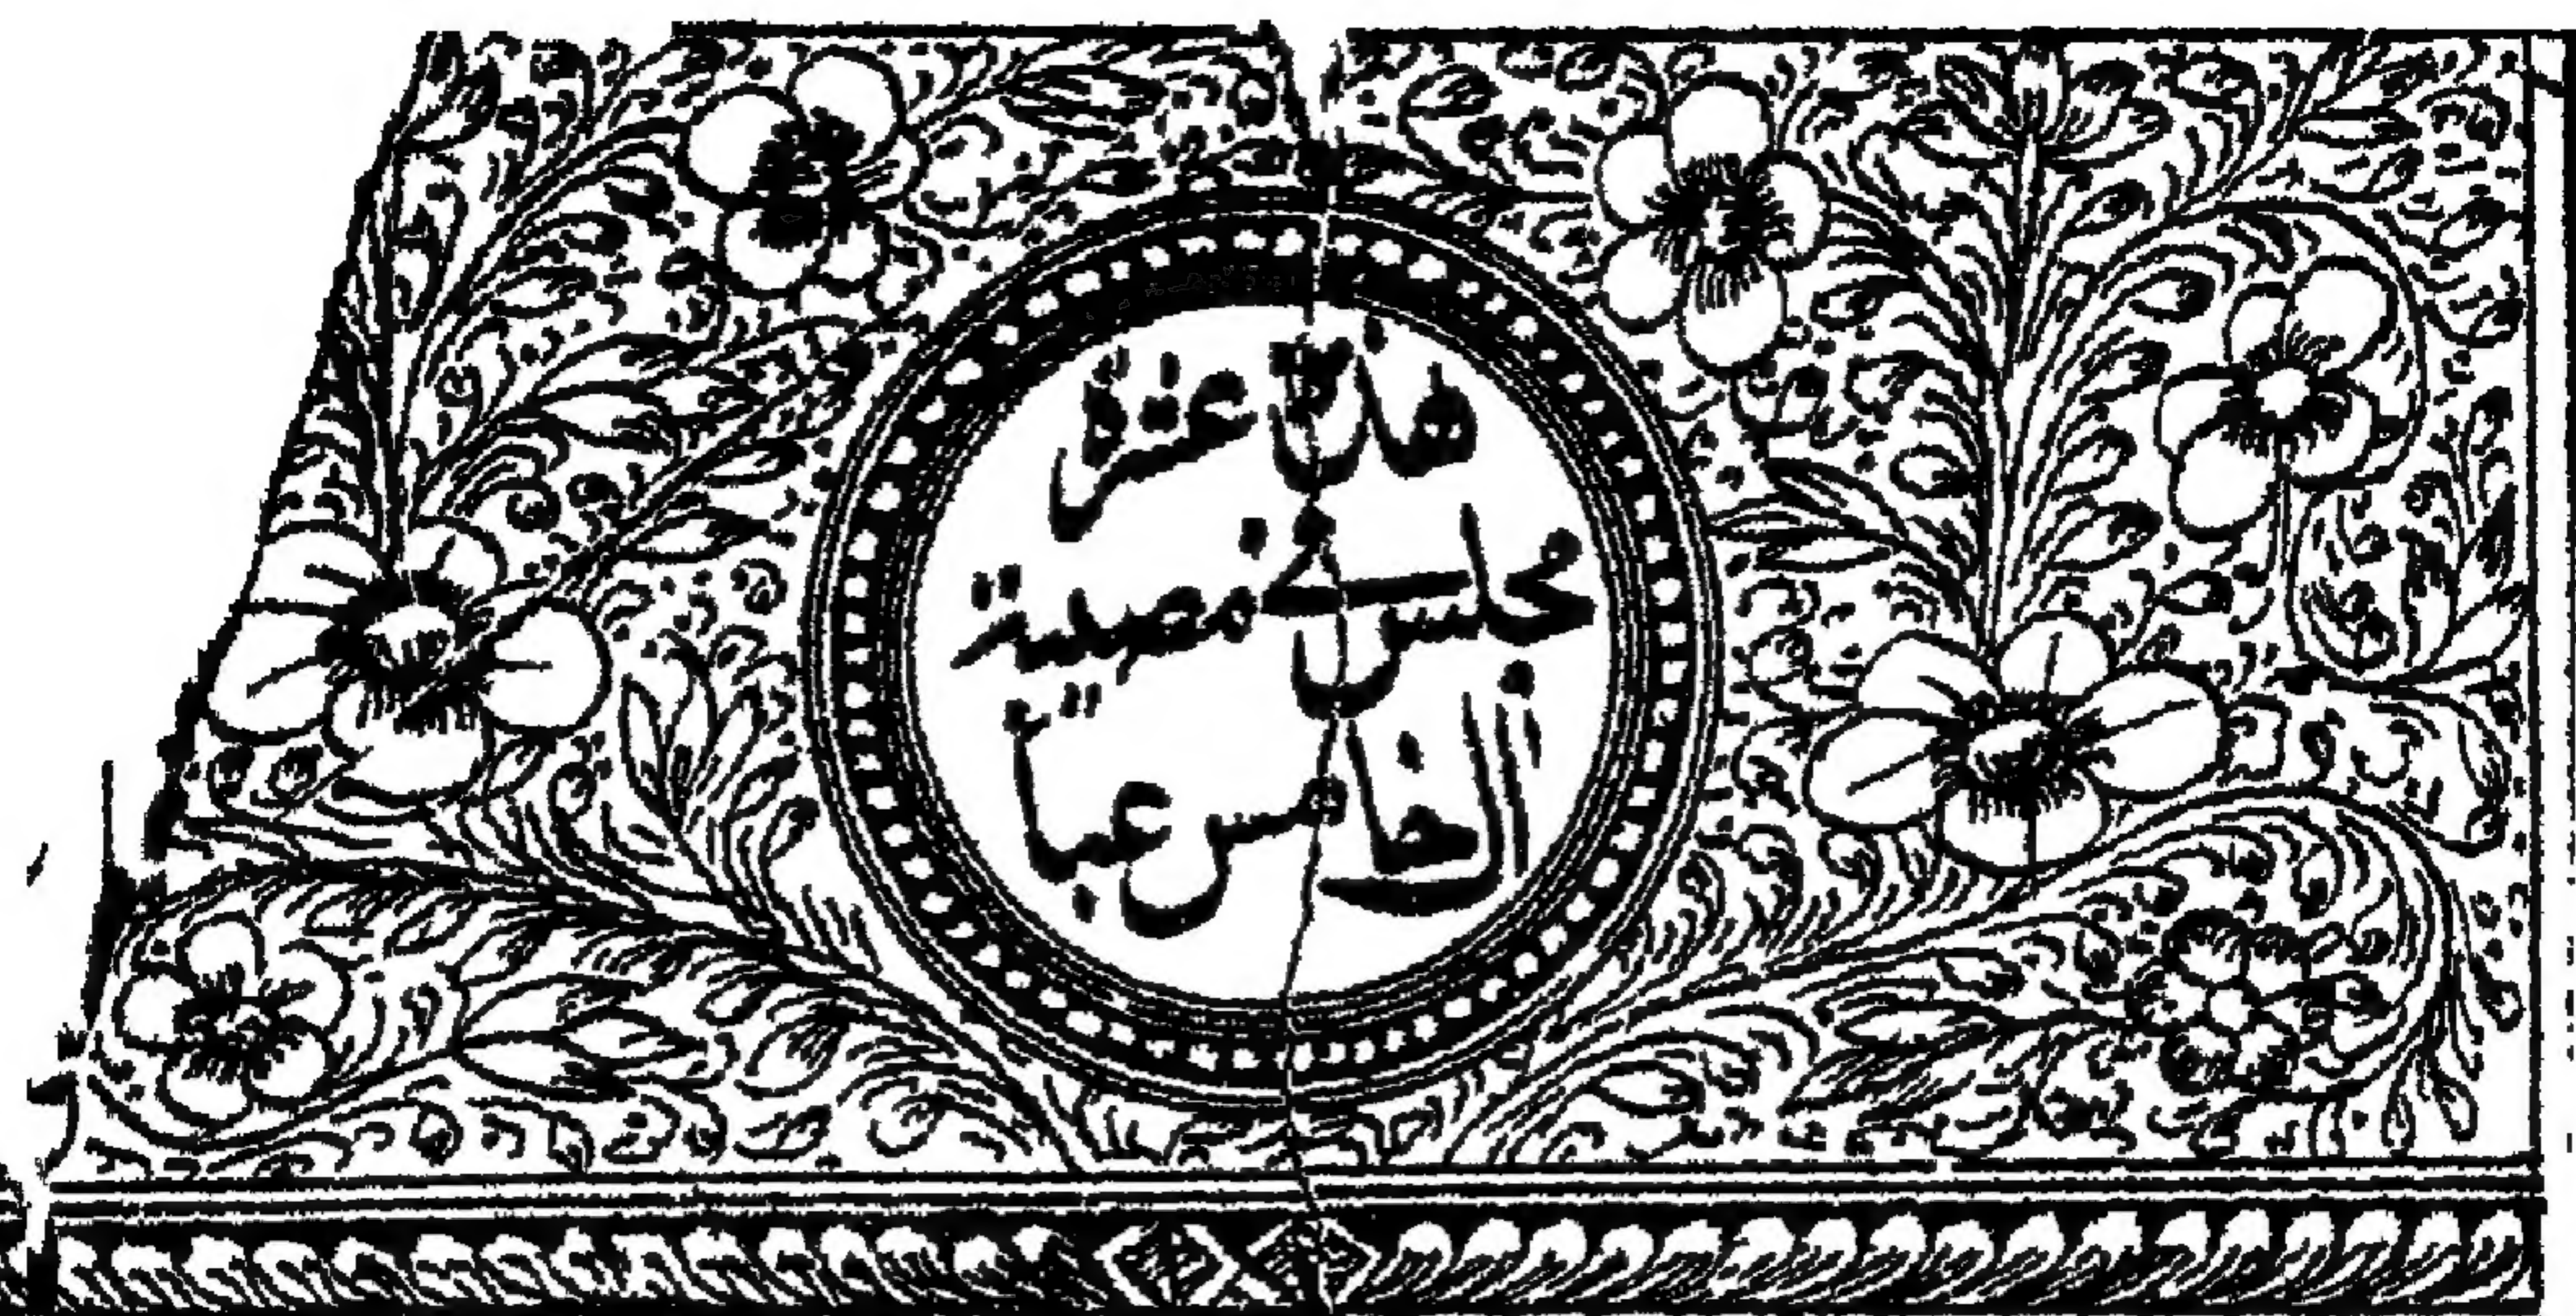 هذه عشرة
مجلس في مصيبة
ال خامس عبا